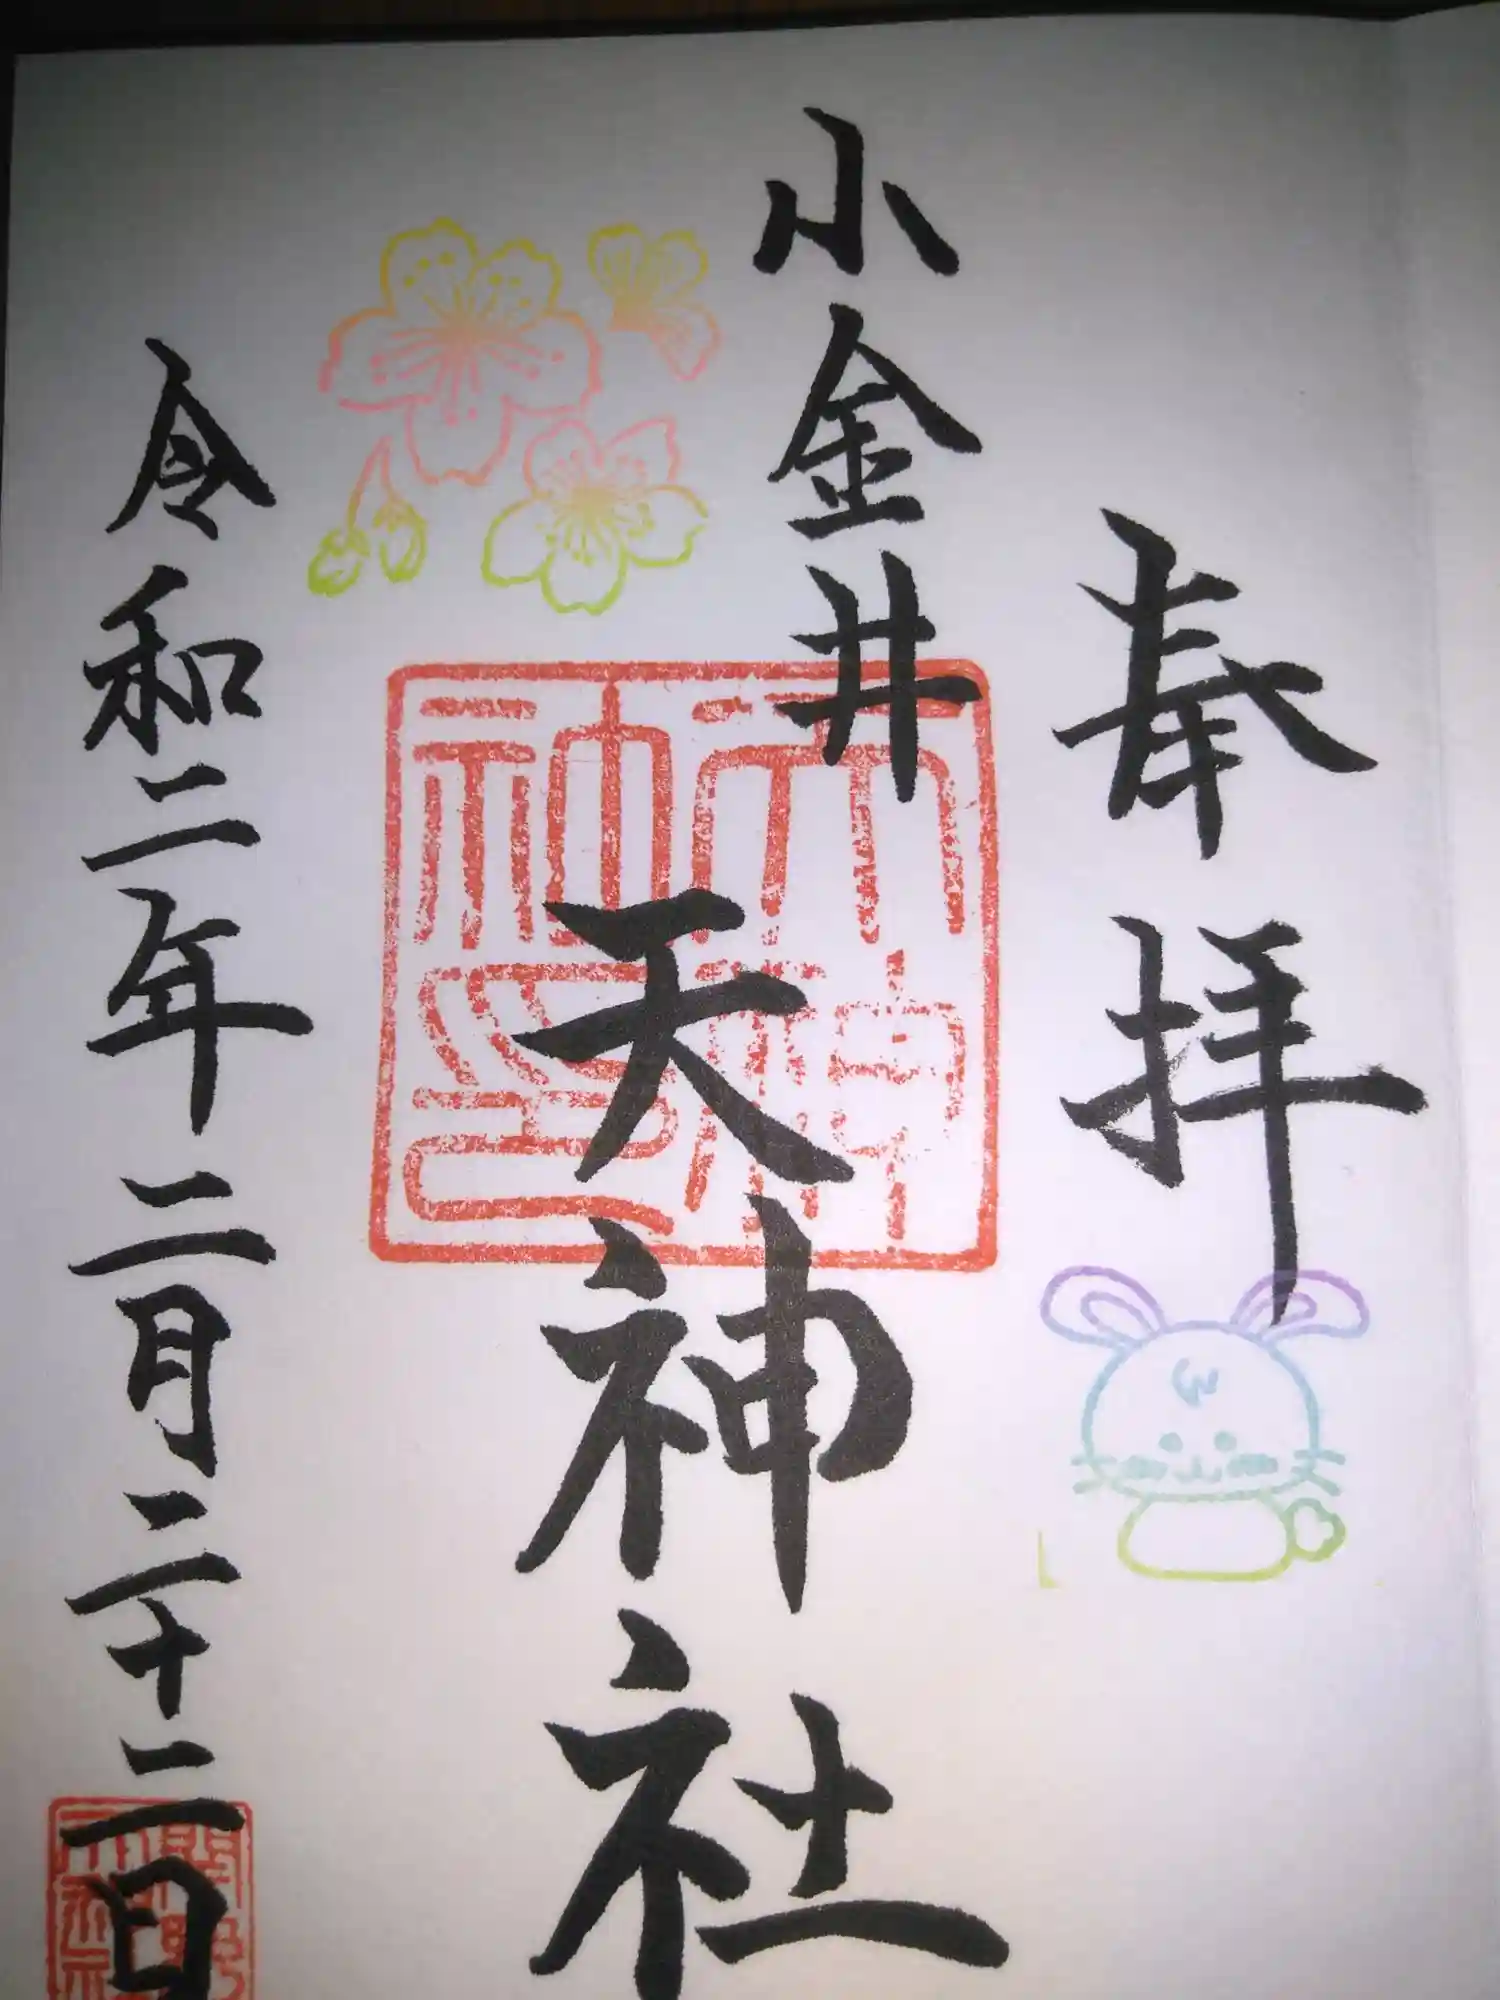 奉拝
小金井
天神社
天神社印
令和二年二月二十二日